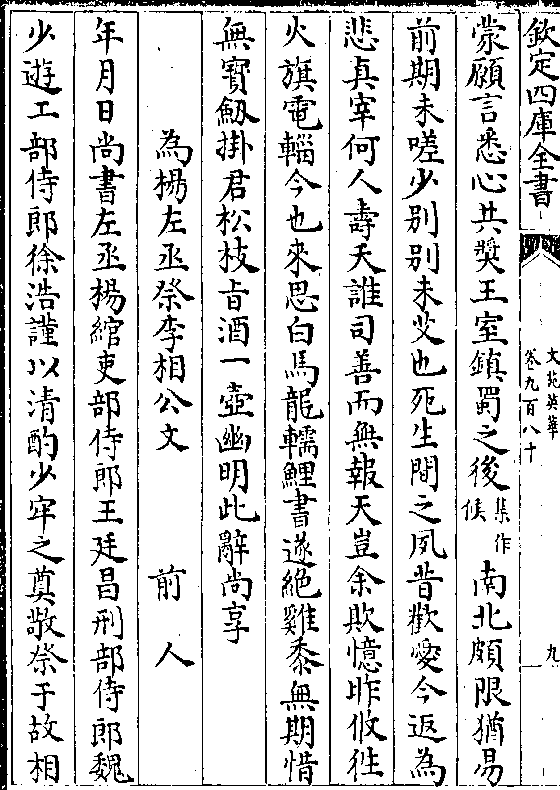 欽定四庫全書
文苑英華
卷九百八十
九
蒙願言悉心共獎王室鎮蜀之後集作候南北頗限猶易
前期未嗟少別別未攵也死生間之夙昔歡愛今返為
悲真宰何人壽夭誰司善而無報天豈余欺憶昨攸徃
火旗電輜今也來思白馬龍轜鯉書遂絕雞黍無期惜
無寳劔掛君松枝㫖酒一壺幽明此辭尚享
為楊左丞祭李相公文　前人
年月日尚書左丞楊綰吏部侍郎王廷昌刑部侍郎魏
少遊工部侍郎徐浩謹以清酌少牢之奠敬祭于故相